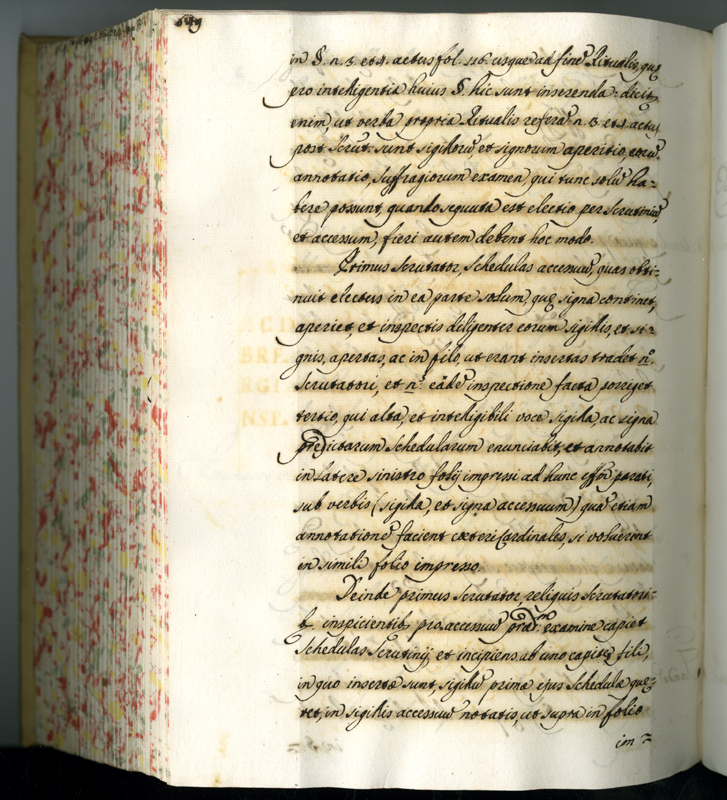 699
in §. n. 3. et 4. actus fol. 116. usque ad finẽ Ritualis, quę
pro intelligentia huius §. hic sunt inserenda = dicit
enim, ut verba propria Ritualis referã n. 3. et 4. actu
post Scrut. sunt sigillorũ, et signorum aperitio, eorũ
annotatio, Suffragiorum examen, qui tunc solũ ha=
bere possunt, quando sequuta est electio per Scrutiniũ,
et accessum, fieri autem debent hoc modo.
Primus Scrutator, Schedulas accessuũ, quas obti=
nuit electus in ea parte solum, quę signa continet,
aperiet, et inspectis diligenter eorum sigillis, et si=
gnis, apertas, ac in filo, ut erant insertas tradet n.º
Scrutatori, et n.º eãdẽ inspectione facta porriget
tertio, qui alta, et intelligibili voce sigilla, ac signa
prędictarum Schedularum enunciabit, et annotabit
in latere sinistro folij impressi ad hunc effũ parati,
sub verbis (sigilla, et signa accessuum) quã etiam
annotationẽ facient cæteri Cardinales, si voluerint
in simili folio impresso.
Deinde primus Scrutator, reliquis Scrutatori=
b. inspicientib. pro accessuũ præd.º examine capiet
Schedulas Scrutinij, et incipiens ab uno capite fili,
in quo insertæ sunt, sigillũ prima ejus Schedula quę=
ret, in sigillis accessuũ notatis, ut supra in folio
im =